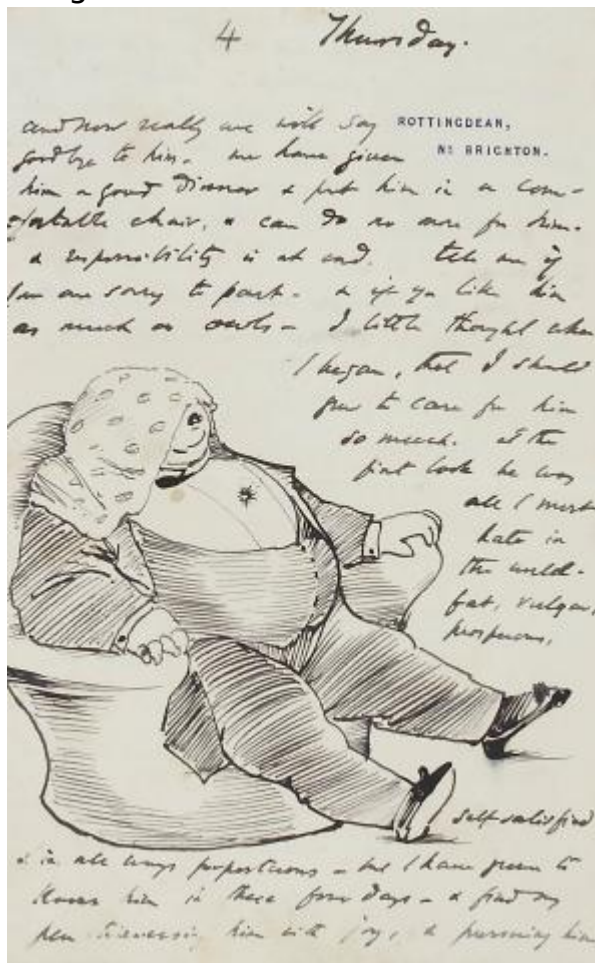 4 Thursday.
and now really we will say ROTTINGDEAN,
goodbye to him. we have given Nr. BRIGHTON.
him a good dinner & put him in a com-
fortable chair, & can do no more for him.
& responsibility is at end. tell me if
you are sorry to part - & if you like him
as much as owls - I little thought when
I began, that I should
grow to care for him
so much. at the
first look he was
all I most
hate in
the world -
fat, vulgar,
prosperous,
self satisfied
& in all ways preposterous - but I have grown to
know him in these four days - & find my
pen him with joy, & pursuing him